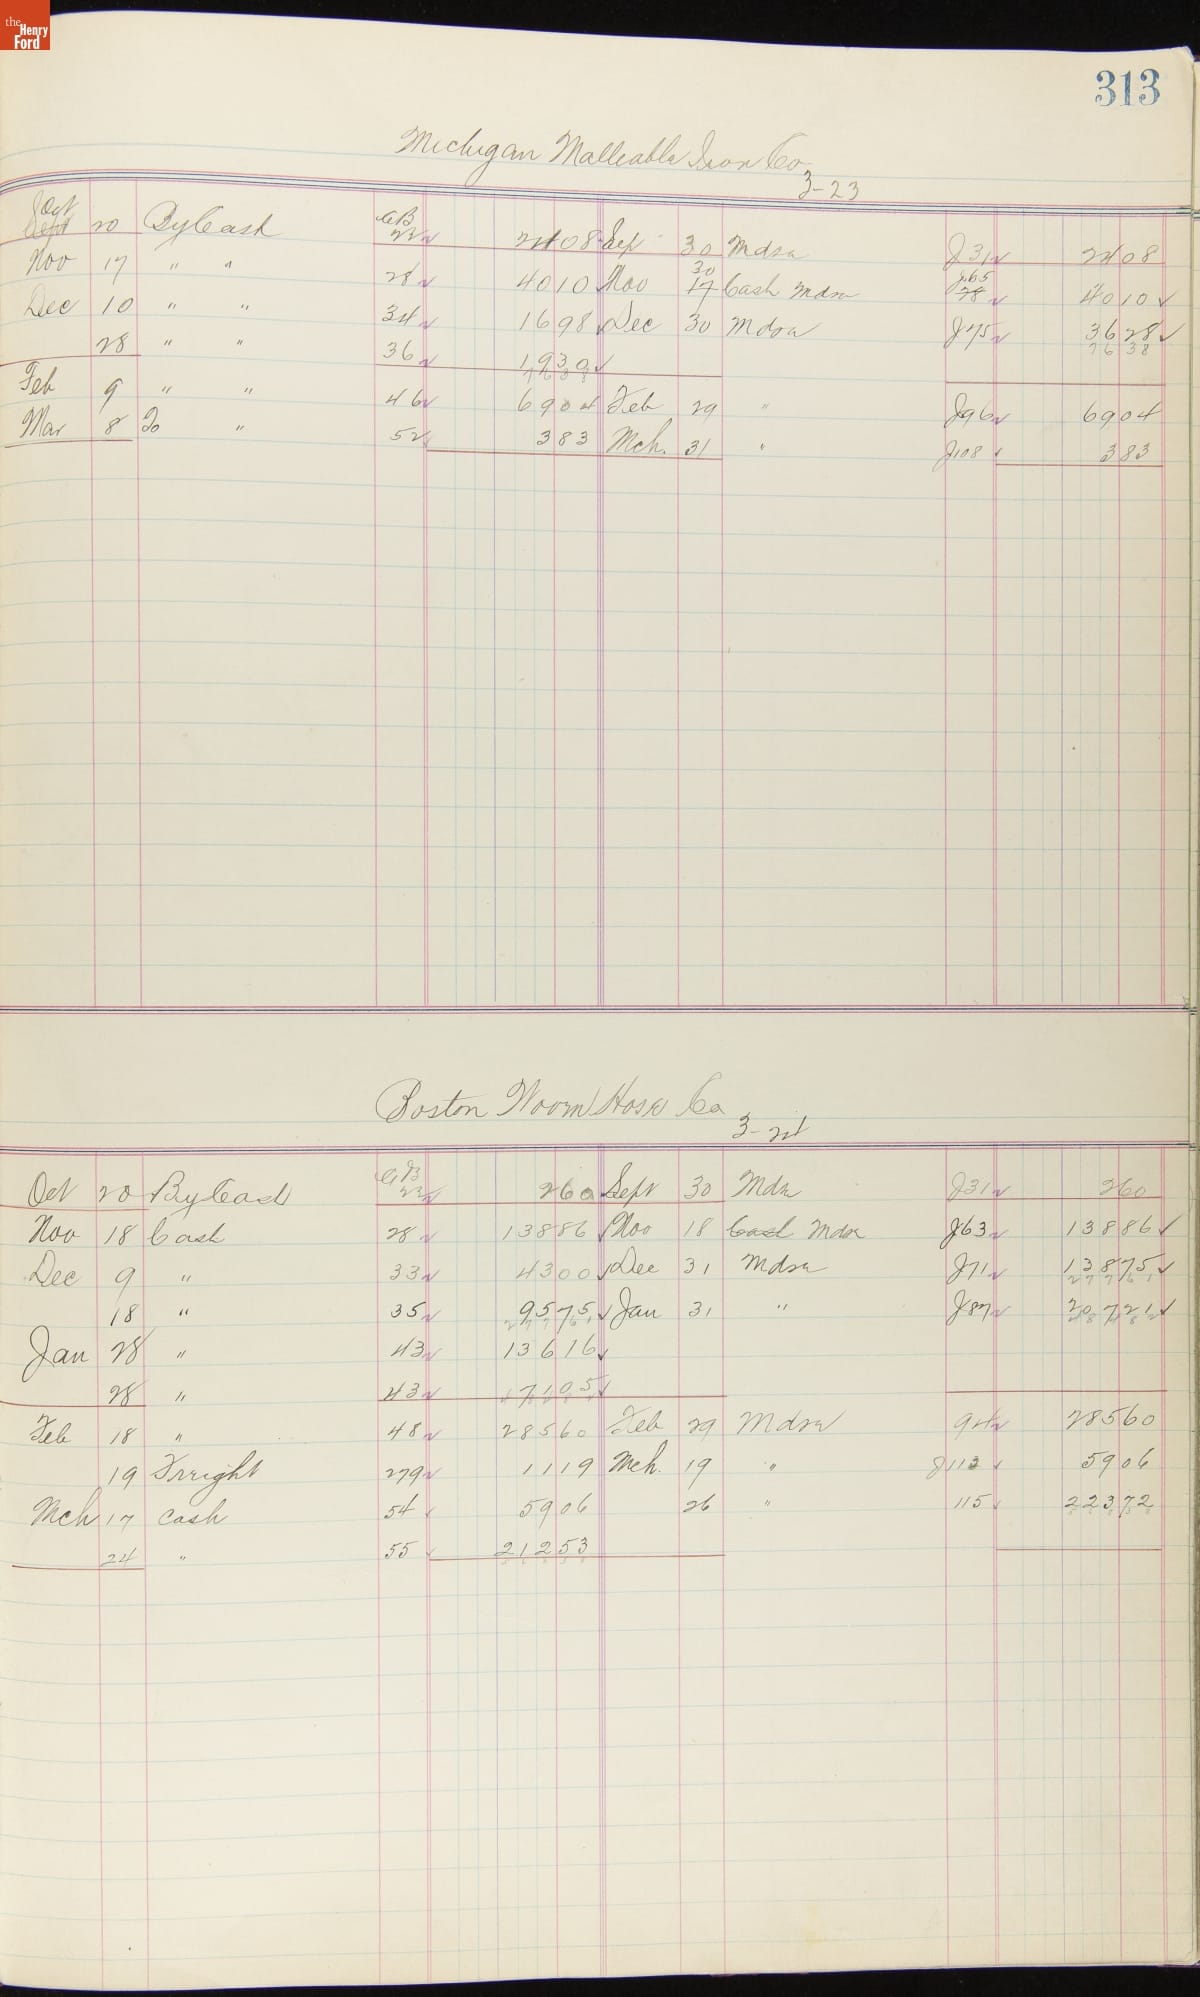 the Henry Ford
313
Michigan Malleable Iron Co
3-23
Oct
Sept 20 By Cash CB 23 24 08 Sep 30 Mdse J31 24 08
30 J65
Nov 17 " " 28 40 10 Nov 17 Cash Mdse 28 40 10
Dec 10 " " 34 16 98 Dec 30 Mdse J75 36 28
28 " " 36 19 30 76 38
Feb 9 " " 46 69 04 Feb 29 " J96 69 04
Mar 8 To " 52 3 83 Mch. 31 " J108 3 83
Boston Woven Hose Co
3-24
Oct 20 By Cash CB 23 2 60 Sept 30 Mdse J31 2 60
Nov 18 Cash 28 138 86 Nov 18 Cash Mdse J63 138 86
Dec 9 " 33 43 00 Dec 31 Mdse J71 138 75
277 61
18 " 35 95 75 Jan 31 " J87 207 21
277 61
Jan 28 " 43 136 16
28 " 43 71 05
Feb 18 " 48 285 60 Feb 29 Mdse 94 285 60
19 Freight 279 11 19 Mch. 19 " J112 59 06
Mch 17 Cash 54 59 06 26 " 115 223 72
24 " 55 212 53